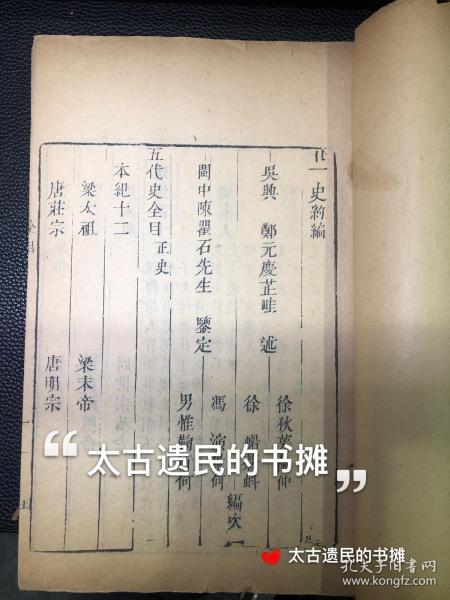 廿一史約編
吳興 鄭元慶芷畦 述
閩中陳瞿石先生 鑒定
徐秋
仲
徐
蚪
馮
何
男惟
何
編次
五代史全目 正史
本紀十二
梁太祖 梁末帝
唐莊宗 唐明宗
“太古遗民的书摊”
太古遗民的书摊
孔夫子旧书网
www.kongfz.com